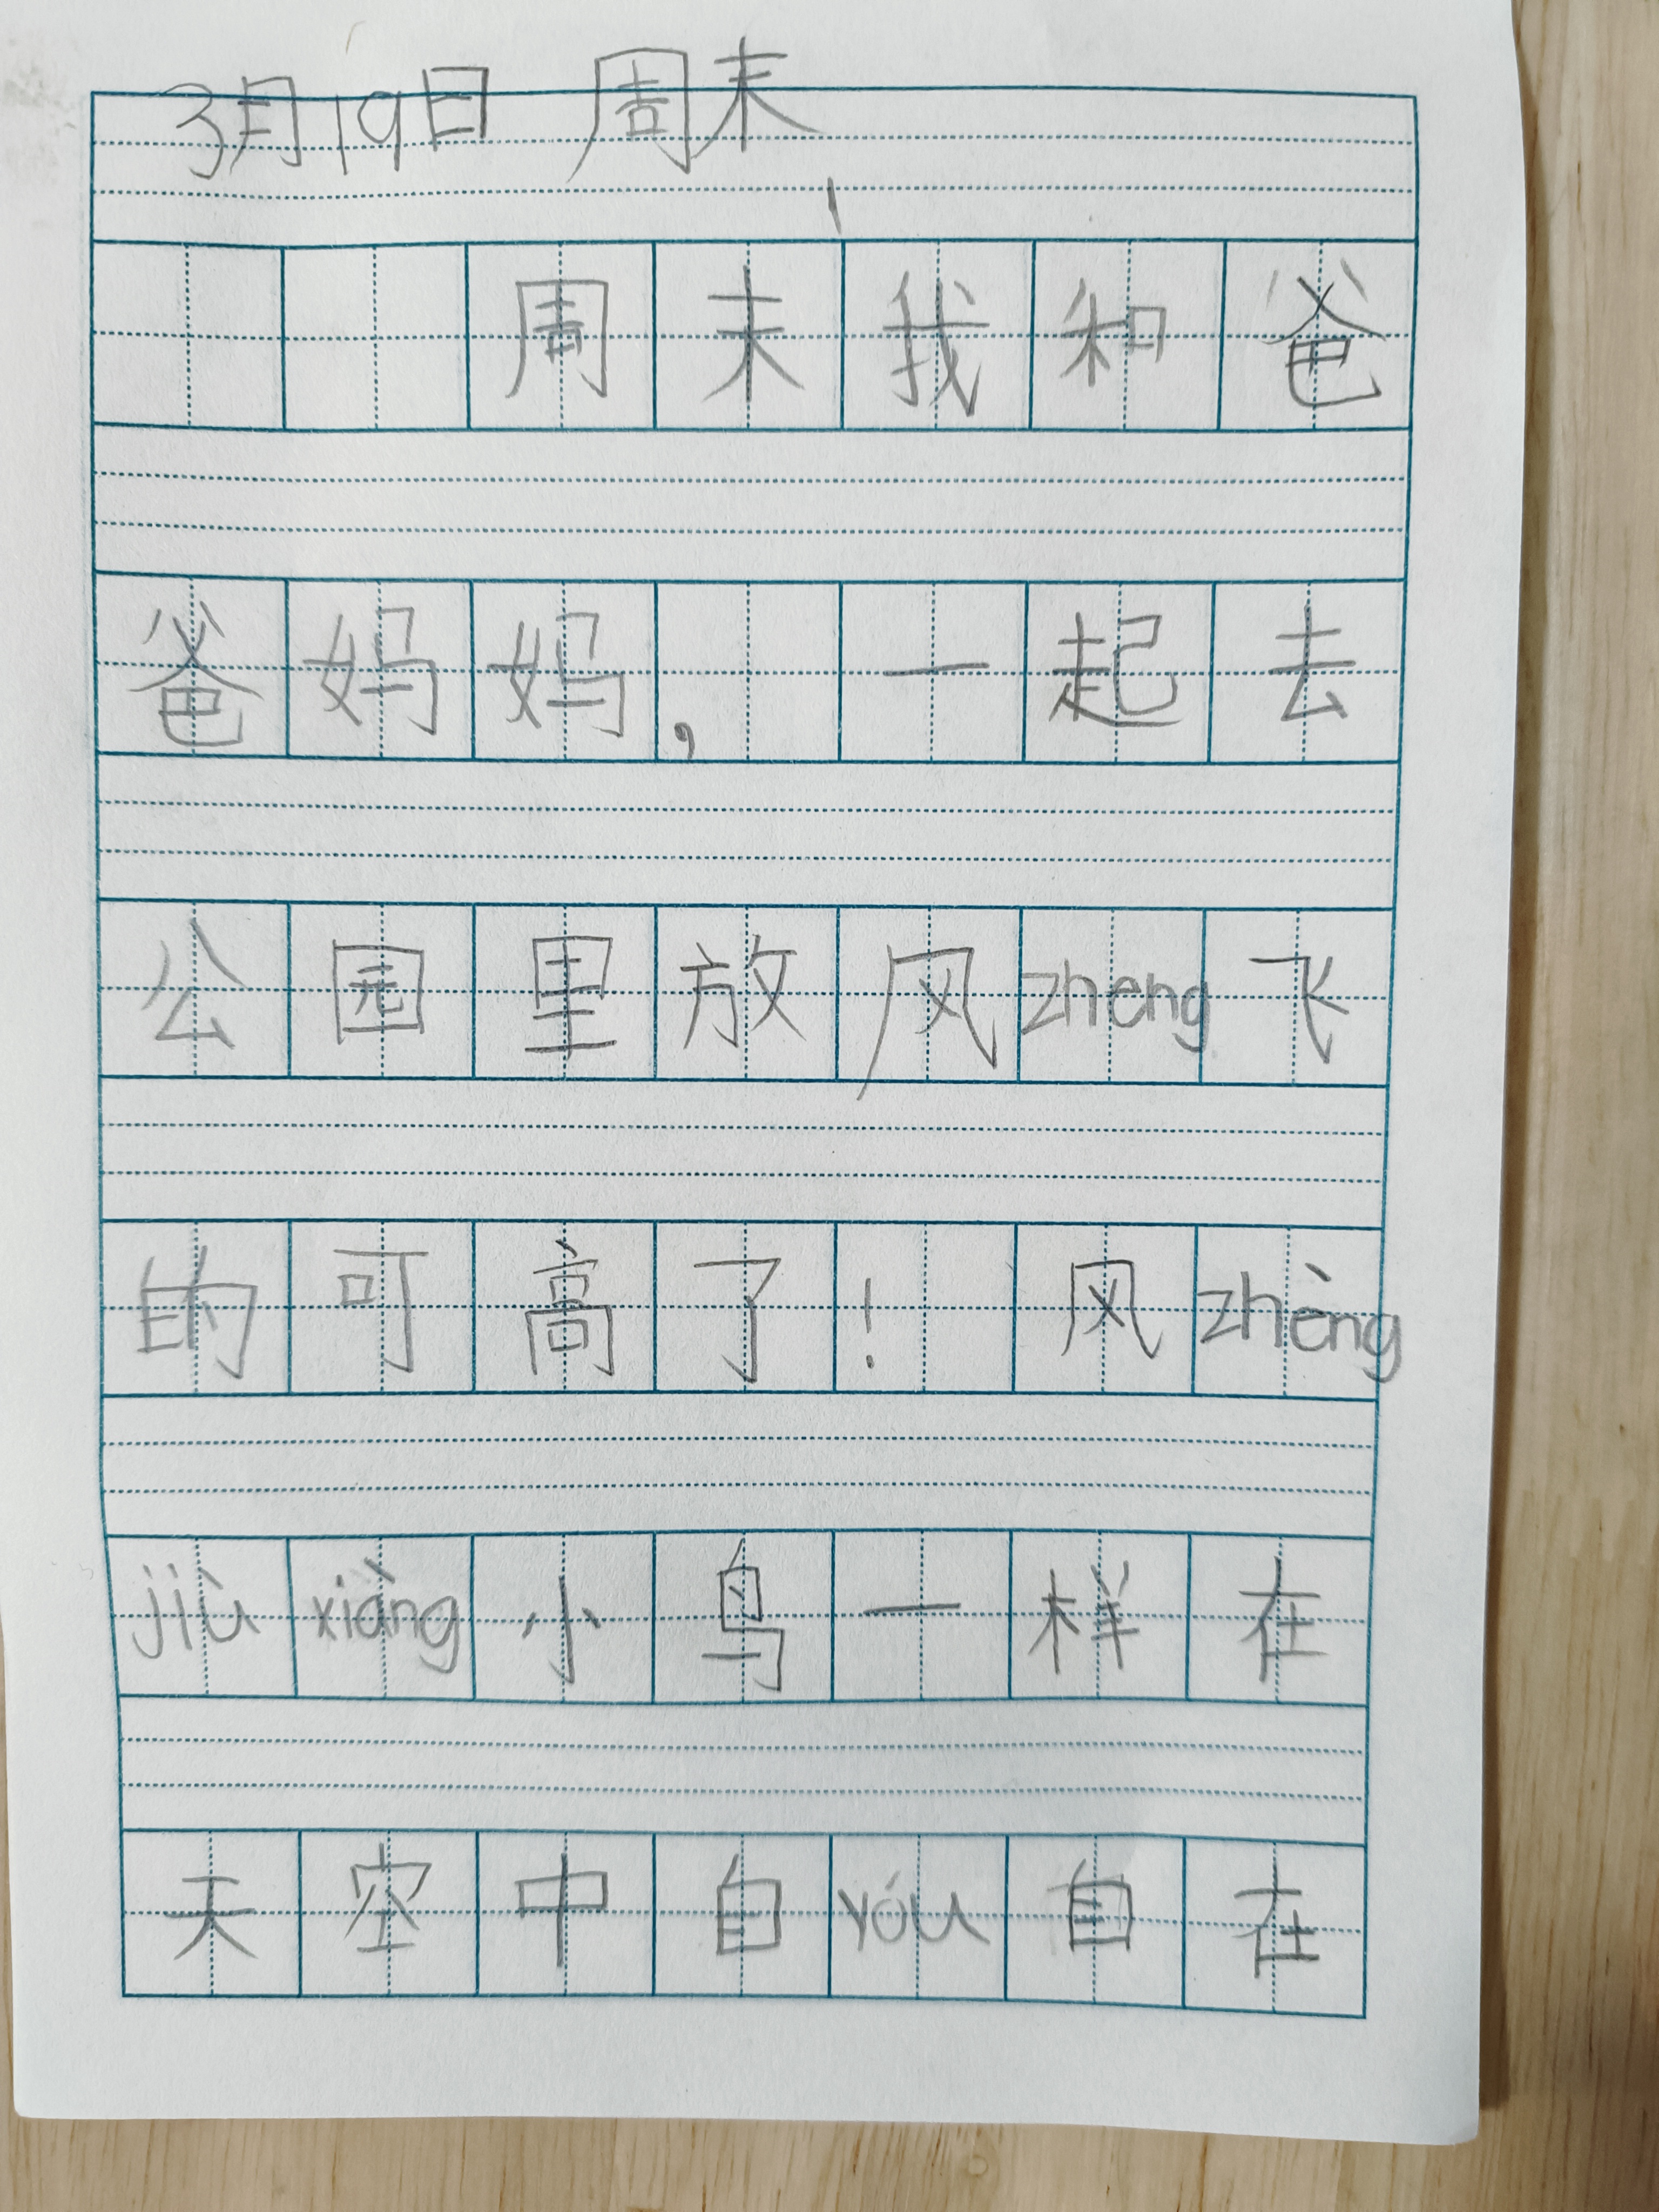 3月19日 周末
周末我和爸
爸妈妈，一起去
公园里放风zheng飞
的可高了！风zhèng
jiù xiàng小鸟一样在
天空中自yóu自在